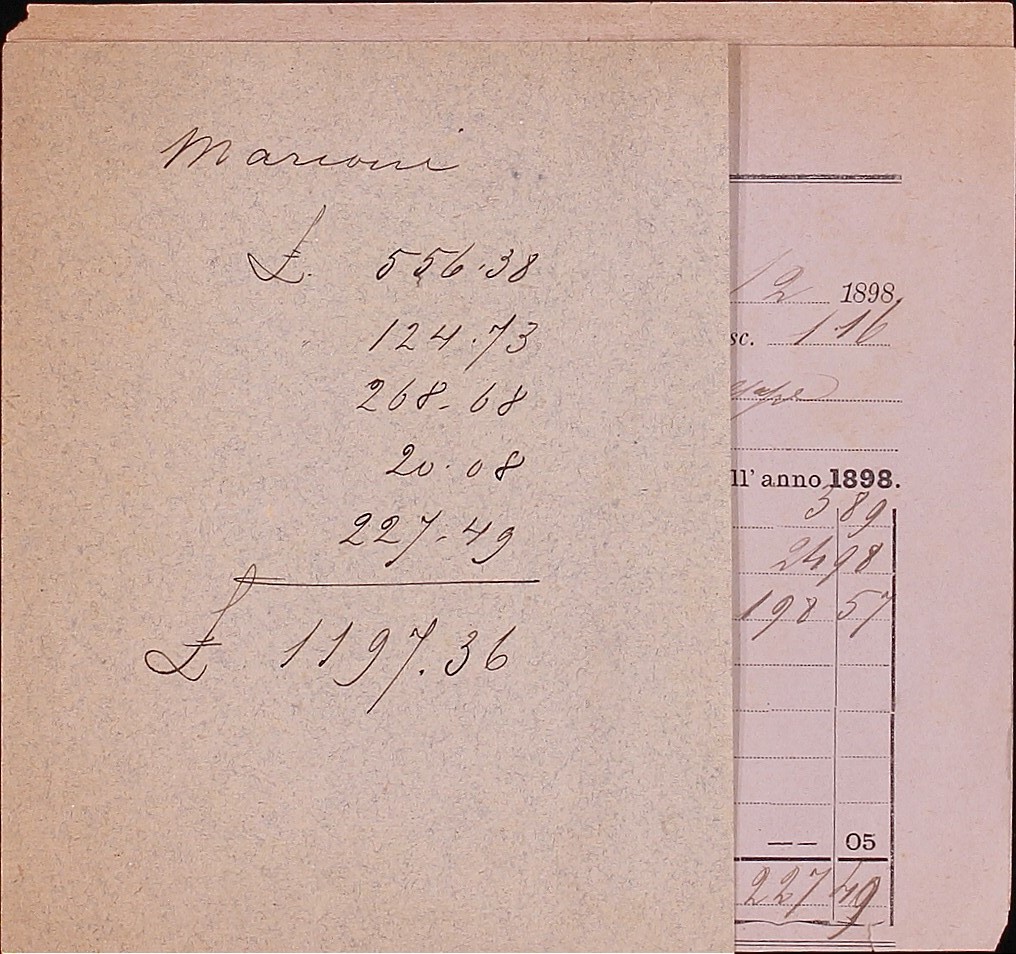 Marconi
£. 556.38
124.73
268.68
20.08
227.49
£ 1197.36
12 1898
sc. 116
ll' anno 1898.
3 89
24 98
198 57
-- 05
227 49